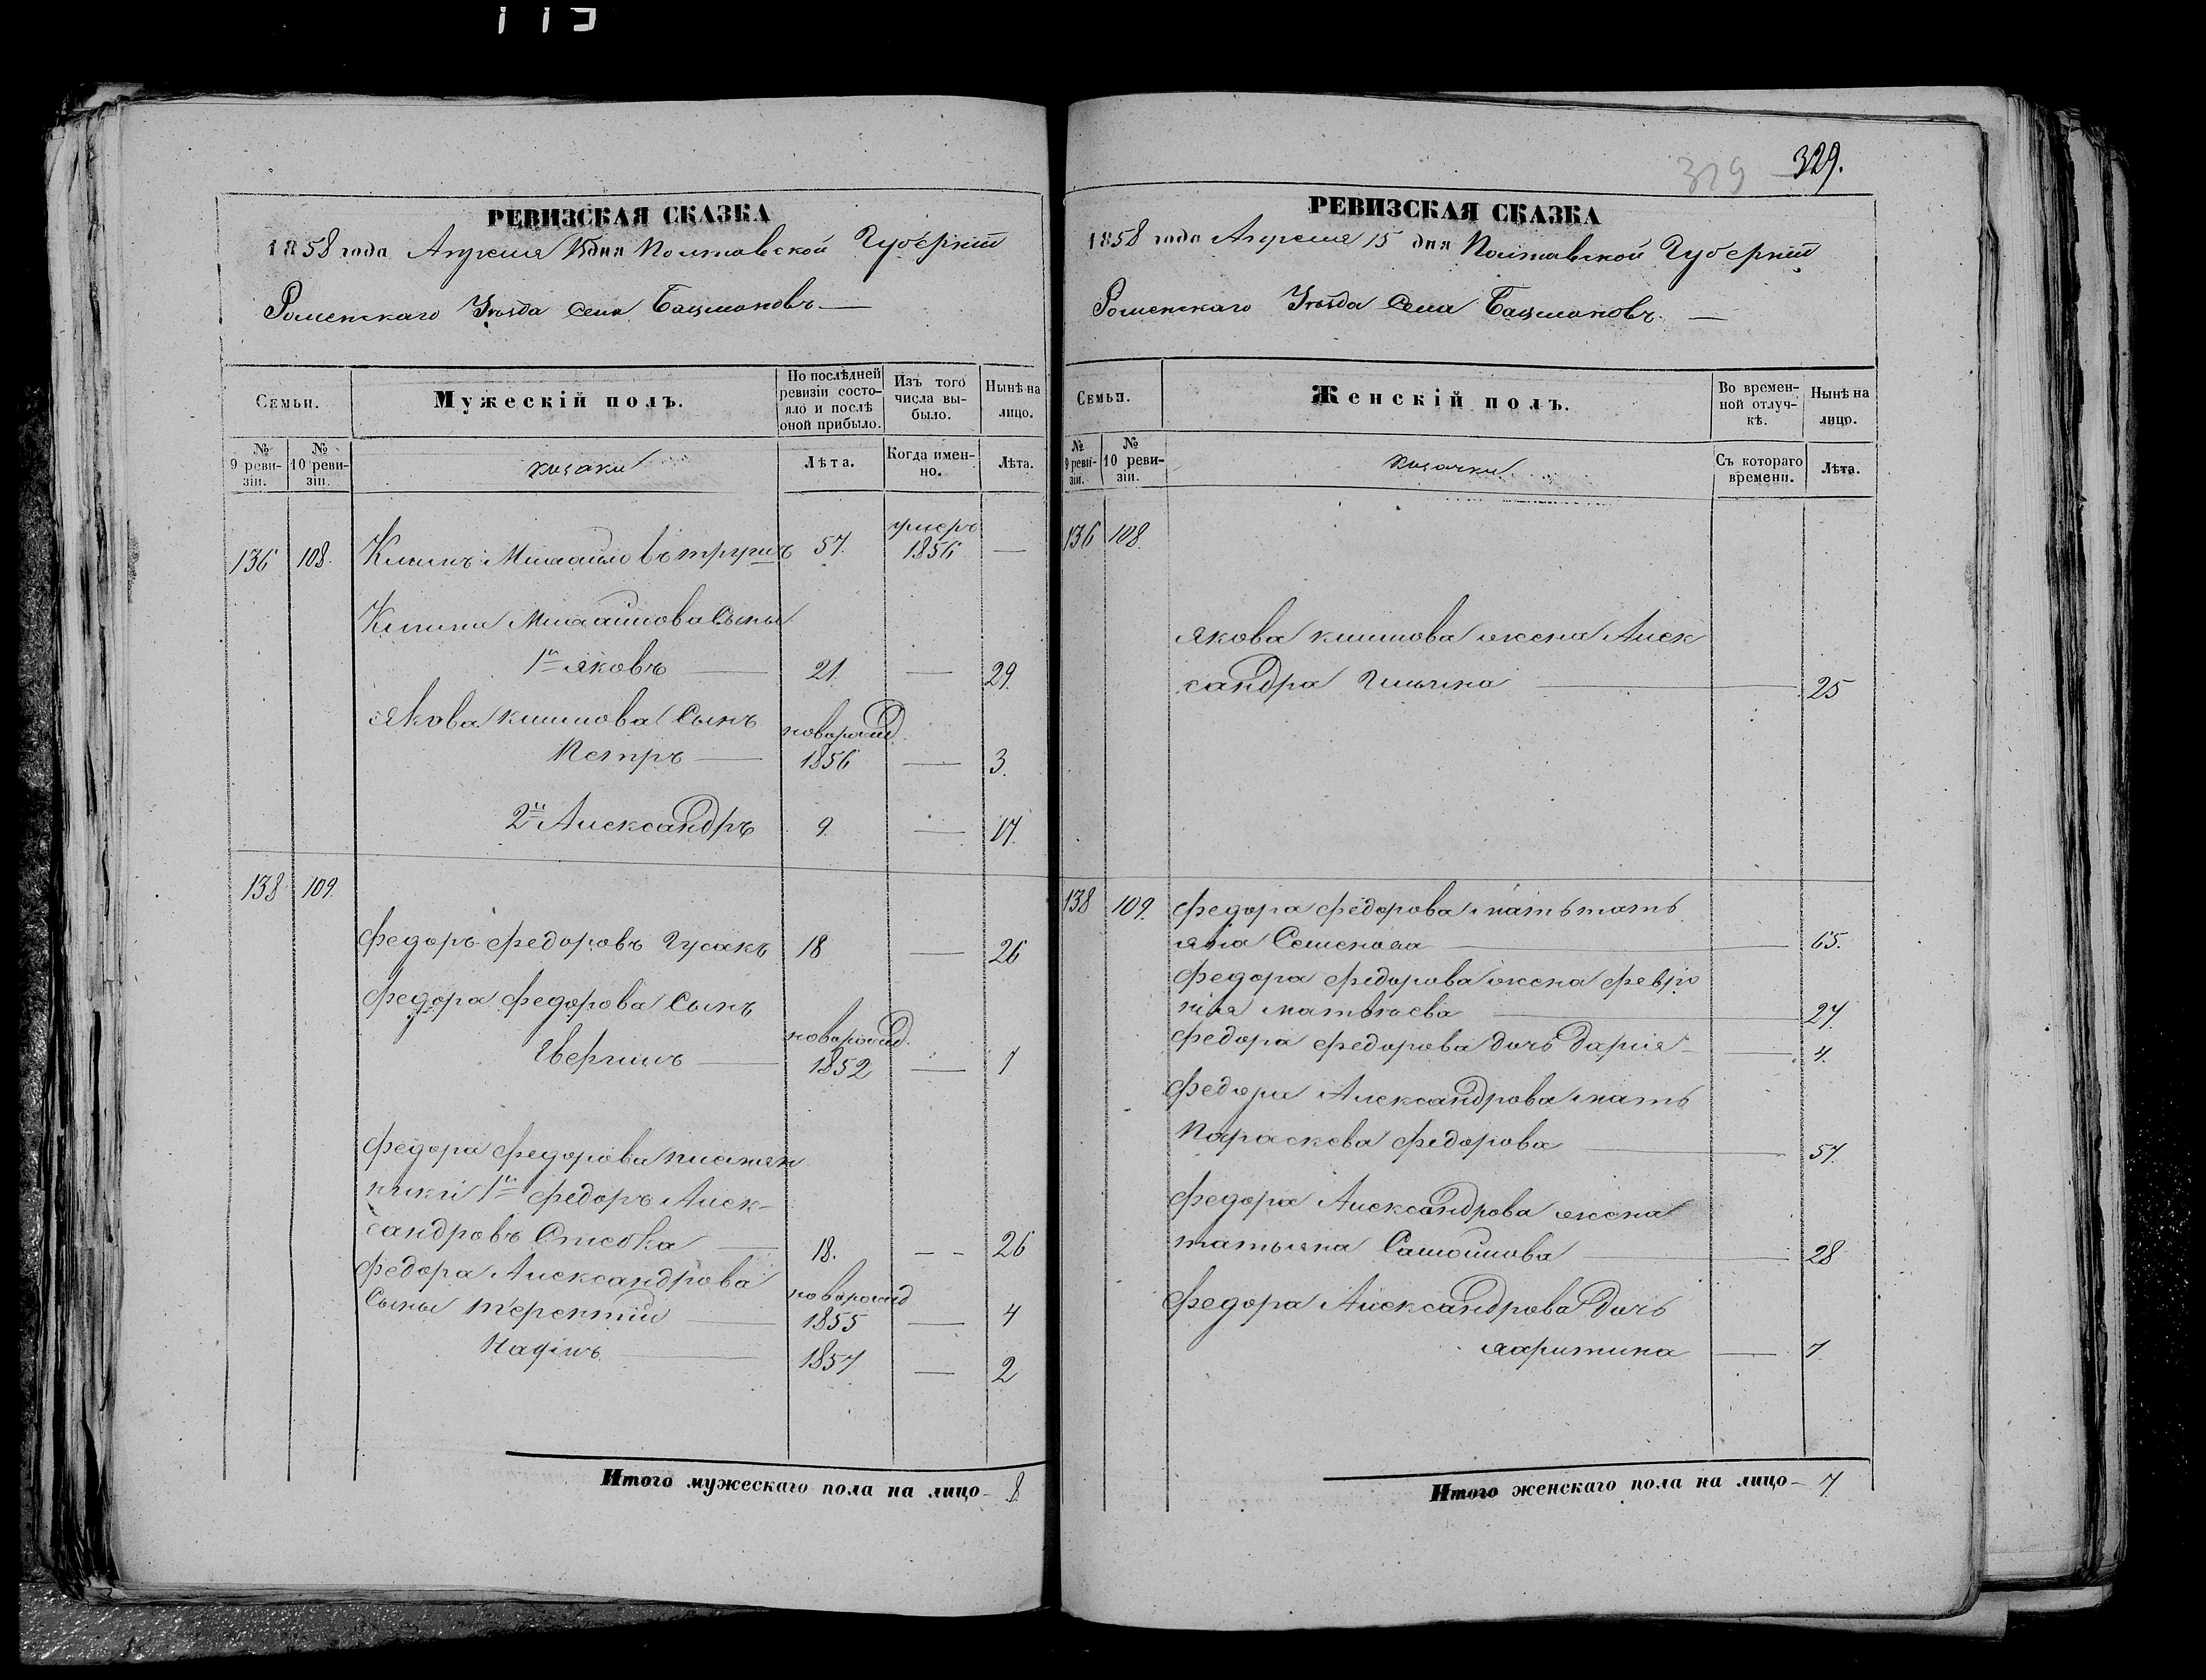 113
РЕВИЗСКАЯ СКАЗКА
1858 года Апреля 15 дня Полтавской Губерніи
Роменскаго Уезда Села Бацмановъ
Семьи.
Мужескій полъ.
По послѣдней ревизіи состояло и послѣ оной прибыло.
Изъ того числа выбыло.
Нынѣ на лицо.
№ 9 ревизіи.
№ 10 ревизіи.
козаки
Лѣта.
Когда именно.
Лѣта.
136 108. Климъ Михайловъ 57. умеръ 1856 —
Клима Михайлова Сыны
1й Яковъ — 21. — 29.
Якова Климова Сынъ новорожд.
Петръ — 1856 — 3.
2й Александръ 9. — 17.
138 109.
Федоръ Федоровъ Гусакъ 18 — 26
Федора Федорова Сынъ новорожд.
— 1852 — 7
Федора Федорова племян
ники 1й Федоръ Алек-
сандровъ — 18. — 26
Федора Александрова новорожд
Сыны Терентій — 1855 — 4
— 1857 — 2
Итого мужескаго пола на лицо – 8.
329 329.
РЕВИЗСКАЯ СКАЗКА
1858 года Апреля 15 дня Полтавской Губерніи
Роменскаго Уезда Села Бацмановъ. —
Семьи.
Женскій полъ.
Во временной отлучкѣ.
Нынѣ на лицо.
№ 9 ревизіи.
№ 10 ревизіи.
козачки
Съ котораго времени.
Лѣта.
136 108.
Якова Климова жена Алек
сандра Ильина — 25
138 109. Федора Федорова мать Тать
яна Семенова — 65.
Федора Федорова жена Февро
нія Матвѣева — 27.
Федора Федорова дочь Дарія — 4.
Федора Александрова мать
Параскева Федорова — 57.
Федора Александрова жена
Татьяна Самойлова — 28
Федора Александрова дочь
Харитина — 7
Итого женскаго пола на лицо – 7.